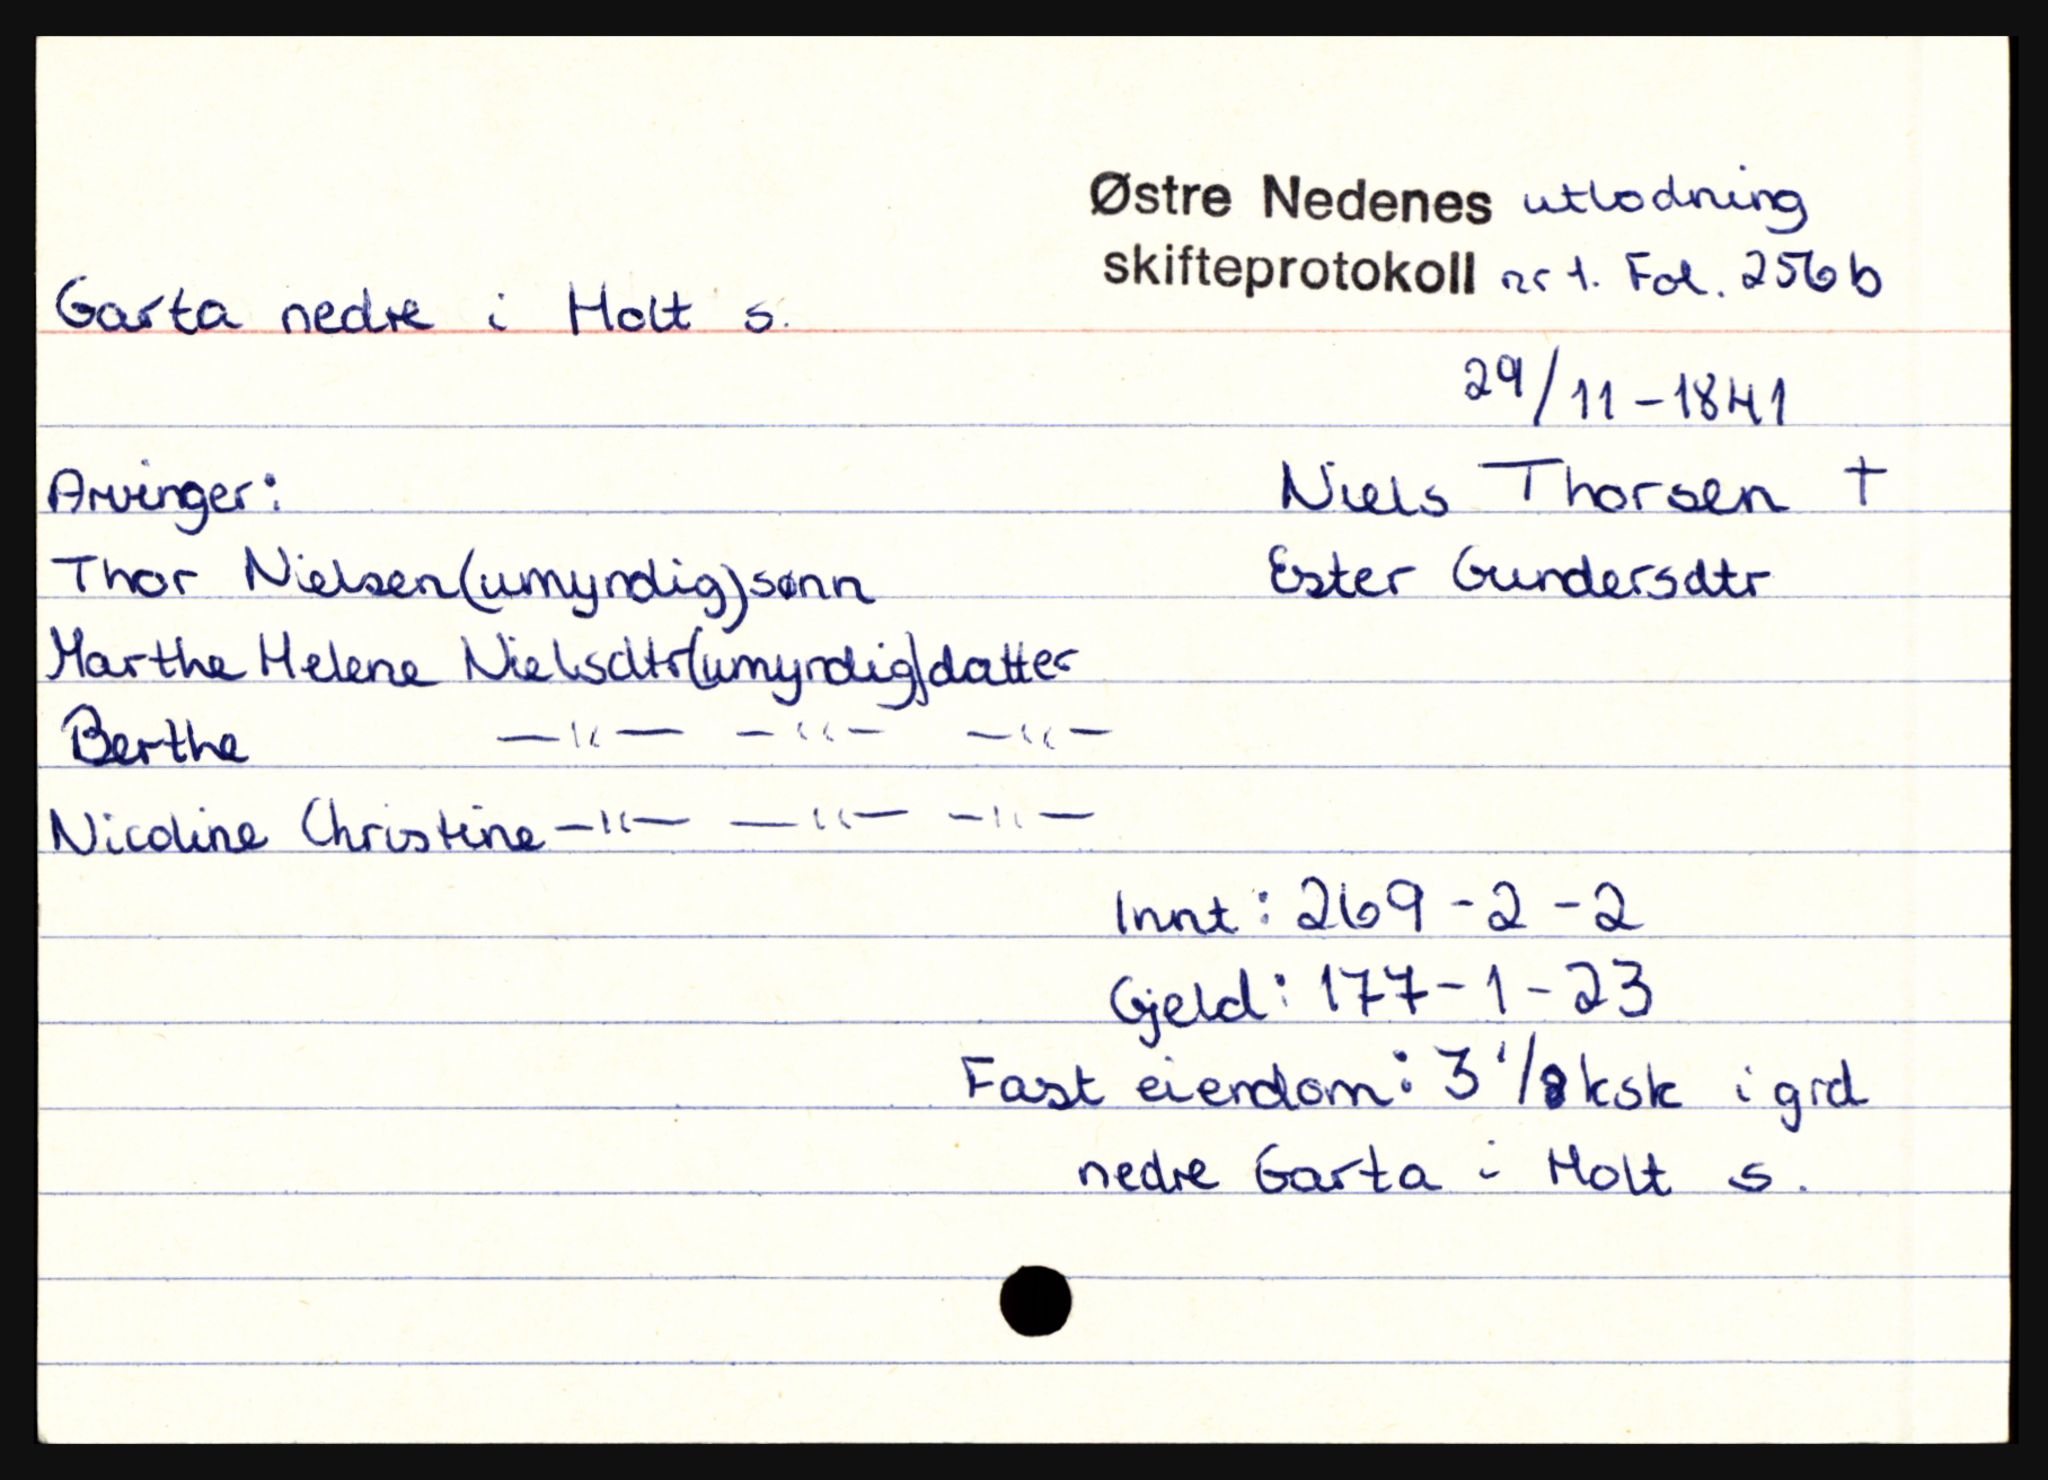 Østre Nedenes utlodning
skifteprotokoll nr 1. Fol. 256 b
Garta nedre i Holt s.
29/11-1841
Arvinger:
Niels Thorsen †
Thor Nielsen (umyndig) sønn
Ester Gundersdtr
Marthe Helene Nielsdtr (umyndig) datter
Berthe —"— —"— —"—
Nicoline Christine —"— —"— —"—
Innt: 269-2-2
Gjeld: 177-1-23
Fast eiendom: 3 1/8 ksk i grd
nedre Garta i Holt s.